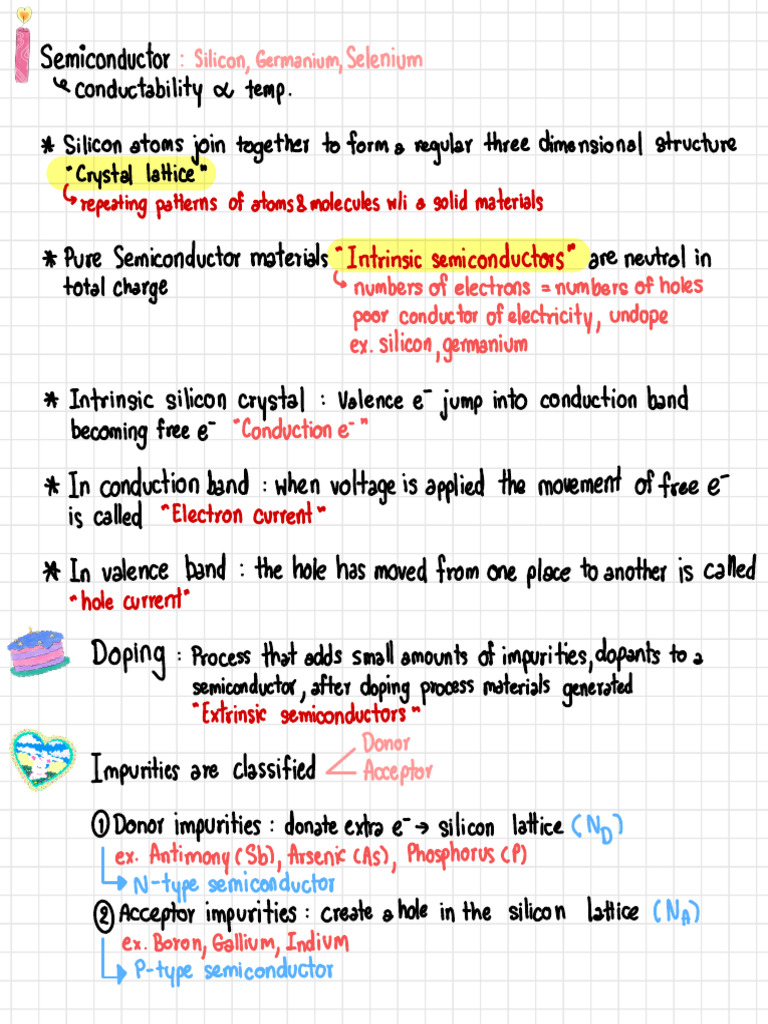 Semiconductor : Silicon, Germanium, Selenium
↳ conductability ∝ temp.
* Silicon atoms join together to form a regular three dimensional structure
"Crystal lattice"
↳ repeating patterns of atoms & molecules w/i a solid materials
* Pure Semiconductor materials "Intrinsic semiconductors" are neutral in
total charge
↳ numbers of electrons = numbers of holes
poor conductor of electricity, undope
ex. silicon, germanium
* Intrinsic silicon crystal : Valence e⁻ jump into conduction band
becoming free e⁻ "Conduction e⁻"
* In conduction band : when voltage is applied the movement of free e⁻
is called "Electron current"
* In valence band : the hole has moved from one place to another is called
"hole current"
Doping : Process that adds small amounts of impurities, dopants to a
semiconductor, after doping process materials generated
"Extrinsic semiconductors"
Donor
Impurities are classified < Acceptor
① Donor impurities : donate extra e⁻ → silicon lattice (N_D)
ex. Antimony (Sb), Arsenic (As), Phosphorus (P)
↳ N-type semiconductor
② Acceptor impurities : create a hole in the silicon lattice (N_A)
ex. Boron, Gallium, Indium
↳ P-type semiconductor